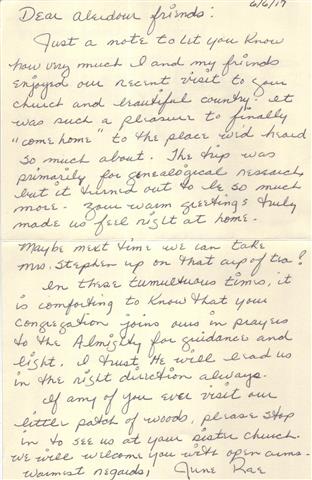 6/6/17
Dear Aberdour friends:
Just a note to let you know
how very much I and my friends
enjoyed our recent visit to your
church and beautiful country. It
was such a pleasure to finally
"come home" to the place we'd heard
so much about. The trip was
primarily for genealogical research,
but it turned out to be so much
more. Your warm greetings truly
made us feel right at home.
Maybe next time we can take
Mrs. Stephen up on that cup of tea!
In these tumultuous times, it
is comforting to know that your
congregation joins ours in prayers
to the Almighty for guidance and
light. I trust He will lead us
in the right direction always.
If any of you ever visit our
little patch of woods, please stop
in to see us at your sister church.
We will welcome you with open arms.
Warmest regards, June Rae